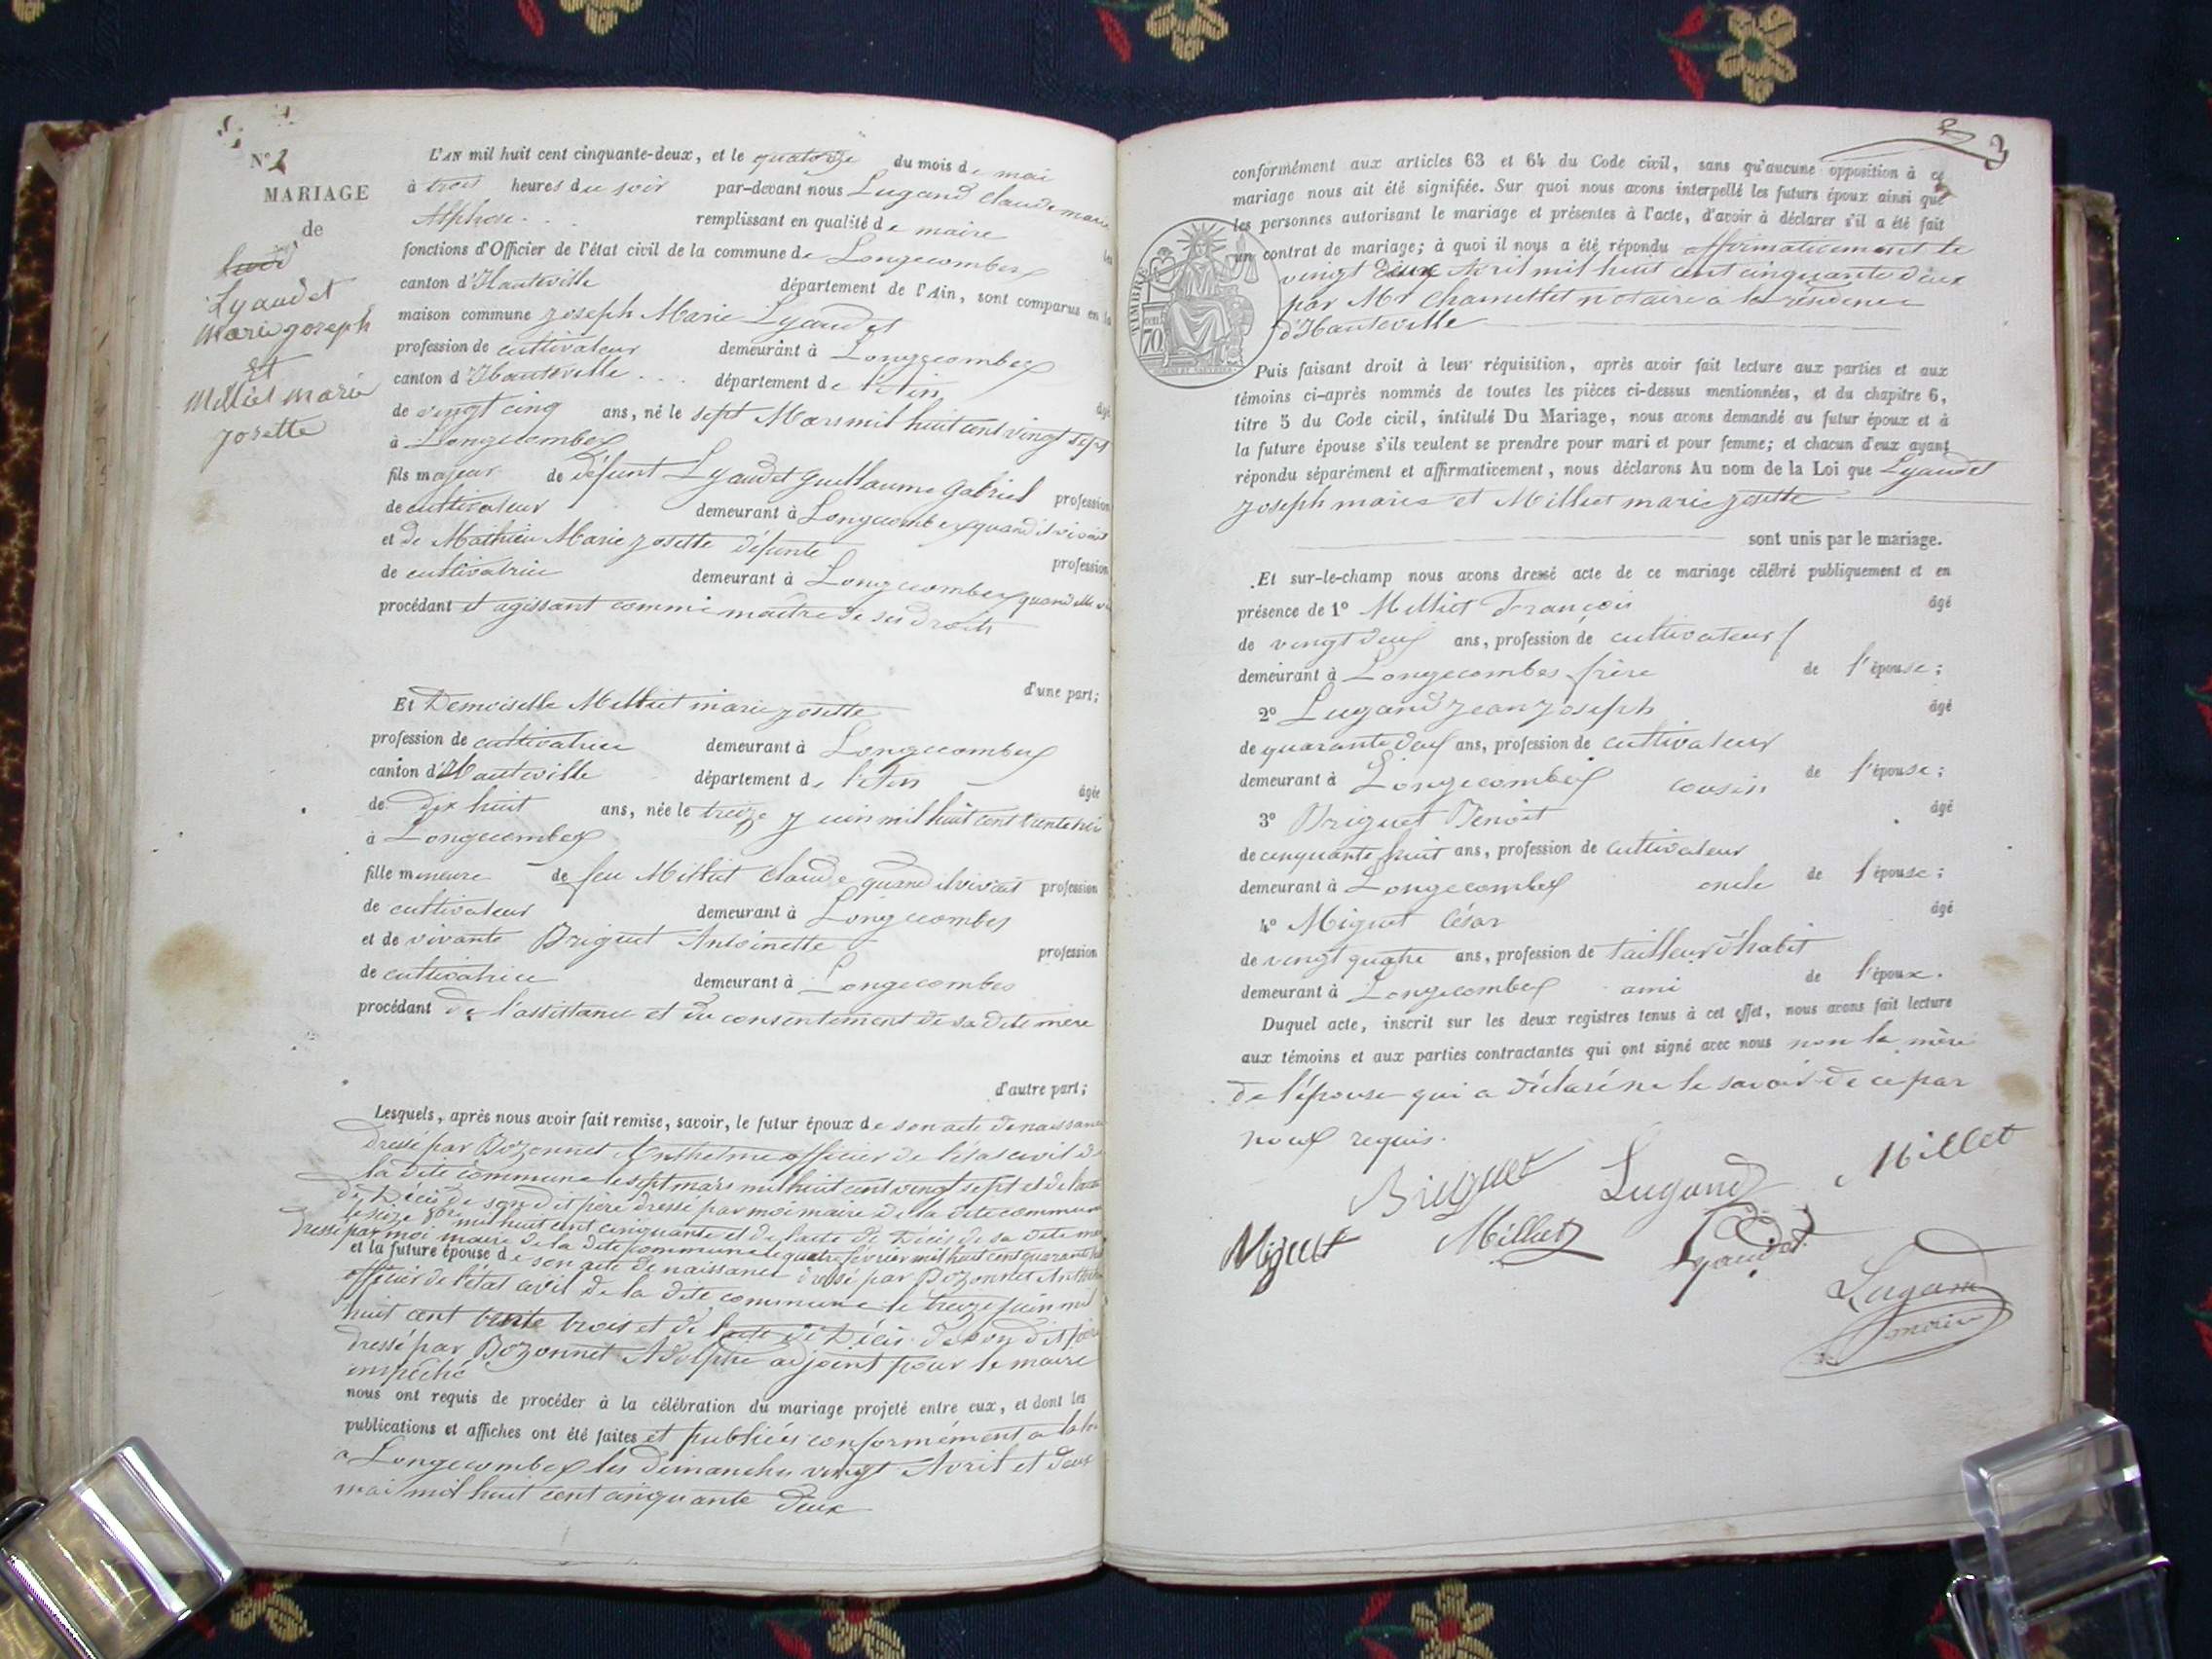 N° 2
MARIAGE
de
Lyaudet
Marie joseph
et
Milliet marie
josette
L'AN mil huit cent cinquante-deux, et le quatorze du mois de mai
à trois heures du soir par-devant nous Lugand Claude marie
Alphose remplissant en qualité de maire les
fonctions d'Officier de l'état civil de la commune de Longecombex
canton d'Hauteville département de l'Ain, sont comparus en la
maison commune Joseph Marie Lyaudet
profession de cultivateur demeurant à Longecombex
canton d'Hauteville département de l'Ain
âgé
de vingt cinq ans, né le sept Mars mil huit cent vingt sept
à Longecombex
fils majeur de défunt Lyaudet Guillaume Gabriel profession
de cultivateur demeurant à Longecombex quand il vivait
et de Mathieu Marie Josette défunte profession
de cultivatrice demeurant à Longecombex quand elle
procédant et agissant comme maître de ses droits
d'une part;
Et Demoiselle Milliet marie josette
profession de cultivatrice demeurant à Longecombex
canton d'Hauteville département de l'Ain
âgée
de dix huit ans, née le treize juin mil huit cent trente trois
à Longecombex
fille mineure de feu Milliet Claude quand il vivait profession
de cultivateur demeurant à Longecombes
et de vivante Briguet Antoinette profession
de cultivatrice demeurant à Longecombes
procédant de l'assistance et du consentement de sa dite mère
d'autre part;
Lesquels, après nous avoir fait remise, savoir, le futur époux de son acte de naissance
dressé par Bozonnet Anthelme officier de l'état civil de
la dite commune le sept mars mil huit cent vingt sept et de l'acte
de Décès de son dit père dressé par moi maire de la dite commune
le seize 8bre mil huit cent cinquante et de l'acte de Décès de sa dite
dressé par moi maire de la dite commune le quatre février mil huit cent quarante
et la future épouse de son acte de naissance dressé par Bozonnet Anthelme
officier de l'état civil de la dite commune le treize juin mil
huit cent trente trois et de l'acte de Décès de son dit père
dressé par Bozonnet Adolphe adjoint pour le maire
empêché
nous ont requis de procéder à la célébration du mariage projeté entre eux, et dont les
publications et affiches ont été faites et publiées conformément a la loi
a Longecombex les dimanches vingt Avril et deux
mai mil huit cent cinquante deux
3
conformément aux articles 63 et 64 du Code civil, sans qu'aucune opposition à ce
mariage nous ait été signifiée. Sur quoi nous avons interpellé les futurs époux ainsi que
les personnes autorisant le mariage et présentes à l'acte, d'avoir à déclarer s'il a été fait
un contrat de mariage; à quoi il nous a été répondu affirmativement le
vingt deux Avril mil huit cent cinquante deux
par Mr Chamettet notaire à la résidence
d'Hauteville
TIMBRE
70
Puis faisant droit à leur réquisition, après avoir fait lecture aux parties et aux
témoins ci-après nommés de toutes les pièces ci-dessus mentionnées, et du chapitre 6,
titre 5 du Code civil, intitulé Du Mariage, nous avons demandé au futur époux et à
la future épouse s'ils veulent se prendre pour mari et pour femme; et chacun d'eux ayant
répondu séparément et affirmativement, nous déclarons Au nom de la Loi que Lyaudet
joseph marie et Milliet marie josette
sont unis par le mariage.
Et sur-le-champ nous avons dressé acte de ce mariage célébré publiquement et en
présence de 1° Milliet François âgé
de vingt deux ans, profession de cultivateur
demeurant à Longecombes frère de l'épouse;
2° Lugand Jean Joseph âgé
de quarante deux ans, profession de cultivateur
demeurant à Longecombex cousin de l'épouse;
3° Briguet Benoit âgé
de cinquante huit ans, profession de cultivateur
demeurant à Longecombex oncle de l'épouse;
4° Miguet César âgé
de vingt quatre ans, profession de tailleur d'habit
demeurant à Longecombex ami de l'époux.
Duquel acte, inscrit sur les deux registres tenus à cet effet, nous avons fait lecture
aux témoins et aux parties contractantes qui ont signé avec nous non la mère
de l'épouse qui a déclaré ne le savoir de ce par
nous requis.
Briguet Lugand Millet
Miguet Milliet Lyaudet
Lugand
maire